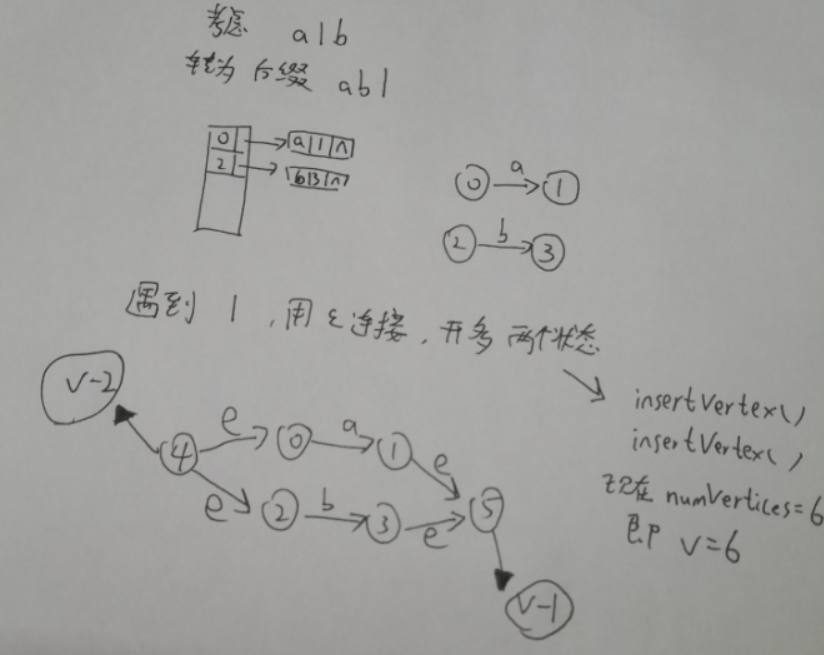 考虑 a|b
转为 后缀 ab|
0 a 1 ∧
2 b 3 ∧
0 a 1
2 b 3
遇到 | ，用 ε 连接，开多 两个状态
insertVertex()
insertVertex()
现在 numVertices=6
即 V=6
V-2
4 e 0 a 1 e
e 2 b 3 e 5
V-1